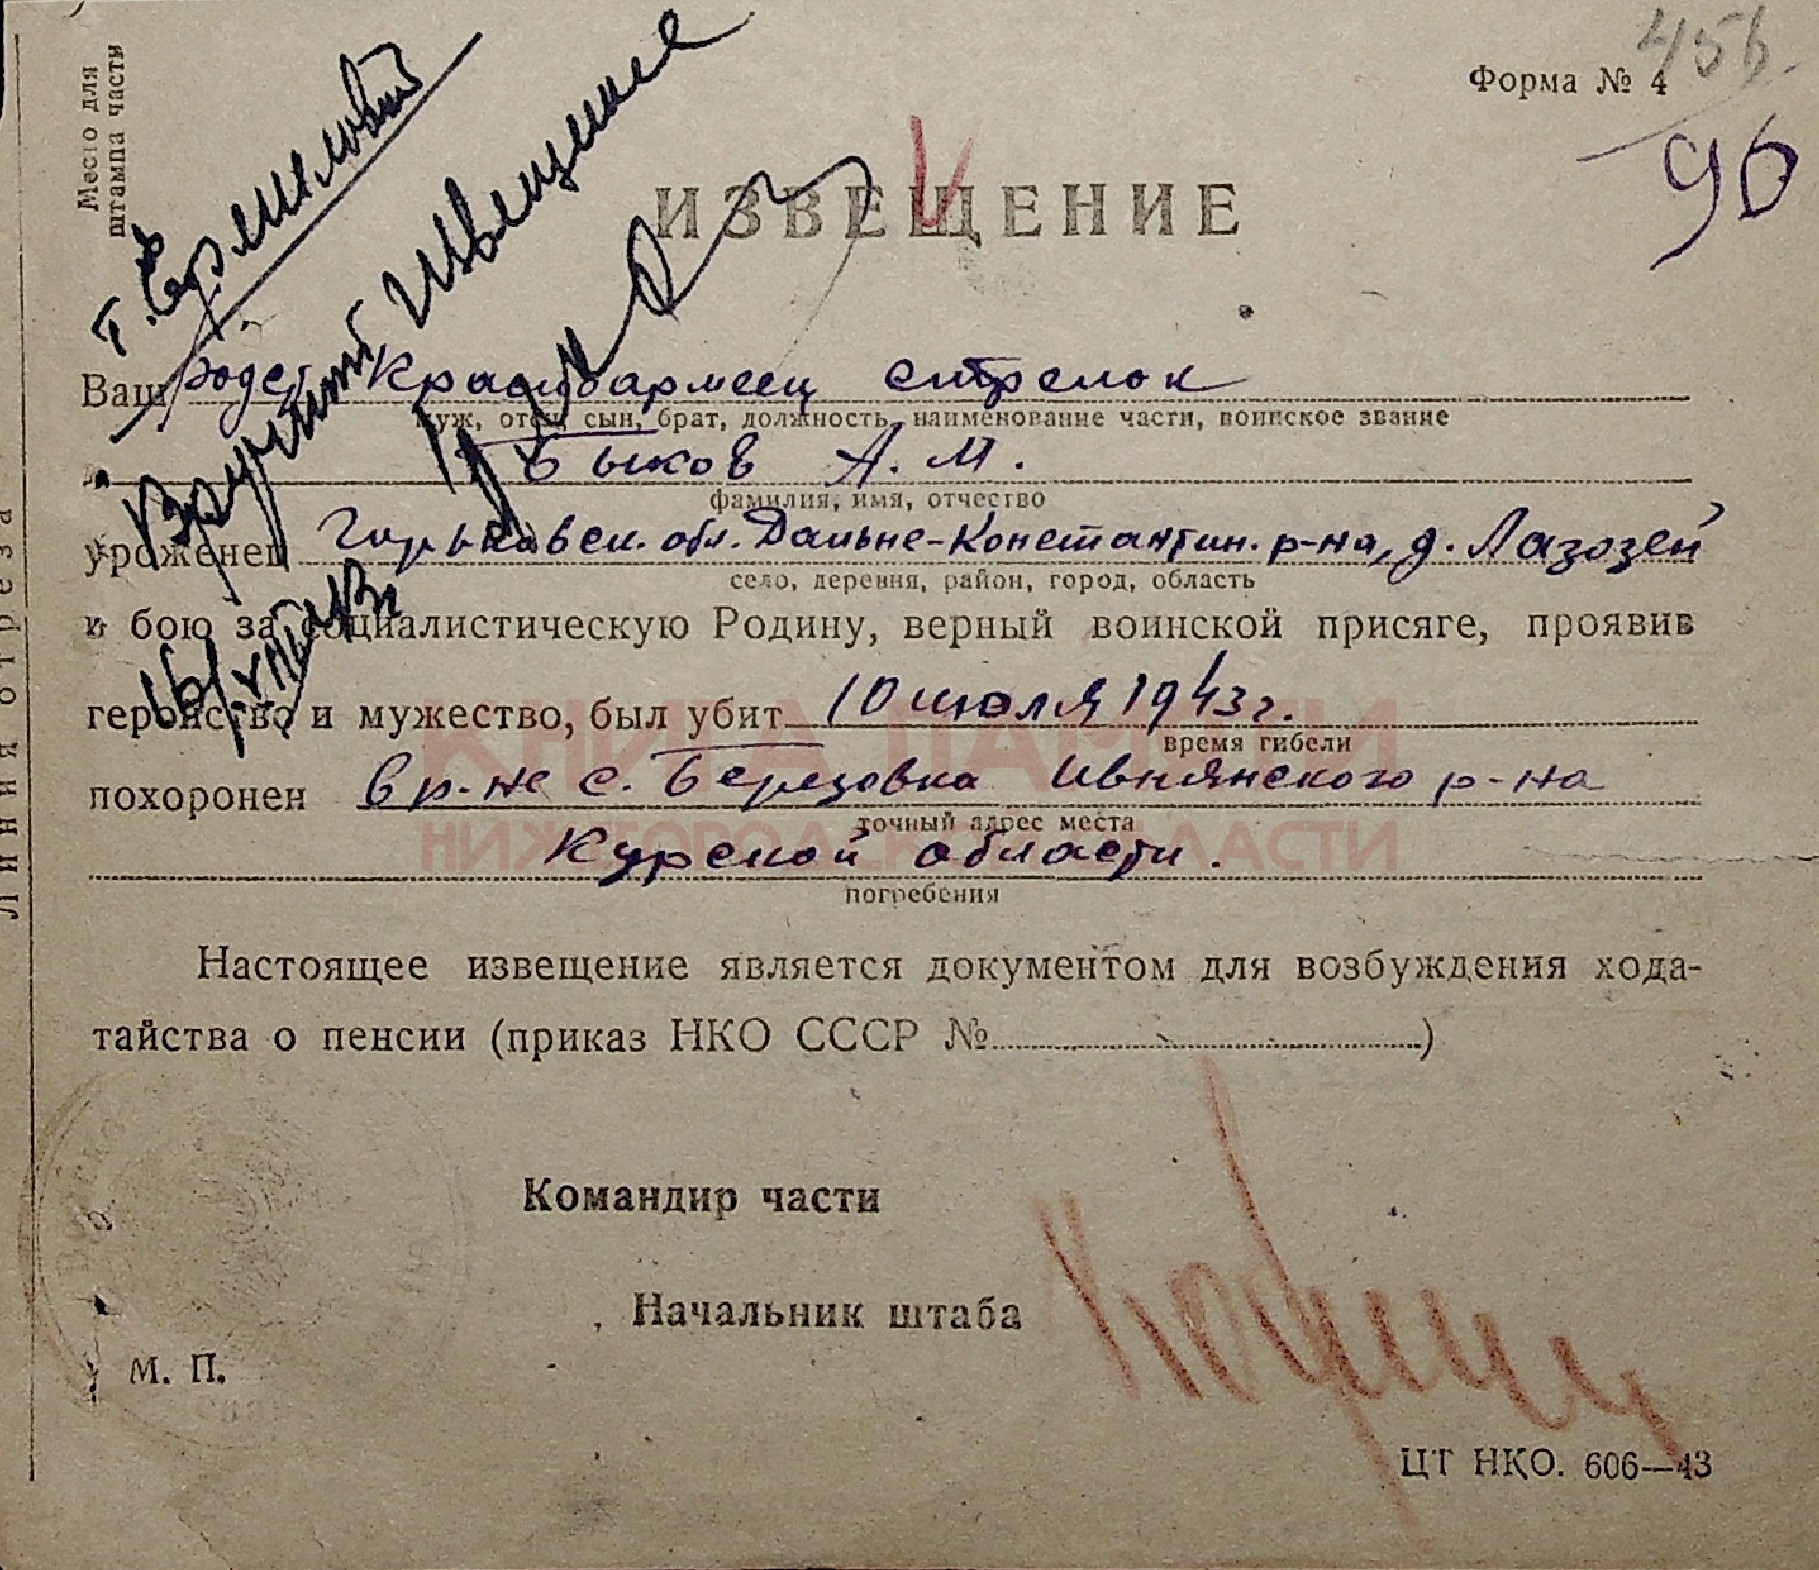 Место для
штампа части
Форма № 4
456.
96
т. Ермиловой
Вручить извещение
ИЗВЕЩЕНИЕ
Ваш родст. Красноармеец стрелок
муж, отец, сын, брат, должность, наименование части, воинское звание
Быков А. М.
фамилия, имя, отчество
уроженец Горьковск. обл. Дальне-Константин. р-на, д. Лазозей
село, деревня, район, город, область
в бою за социалистическую Родину, верный воинской присяге, проявив
геройство и мужество, был убит 10 июля 1943 г.
время гибели
похоронен в р-не с. Березовка Ивнянского р-на
точный адрес места
Курской области.
погребения
КНИГА ПАМЯТИ
НИЖЕГОРОДСКОЙ ОБЛАСТИ
Настоящее извещение является документом для возбуждения хода-
тайства о пенсии (приказ НКО СССР №)
Командир части
Начальник штаба
М. П.
ЦТ НКО. 606—43
Линия отреза